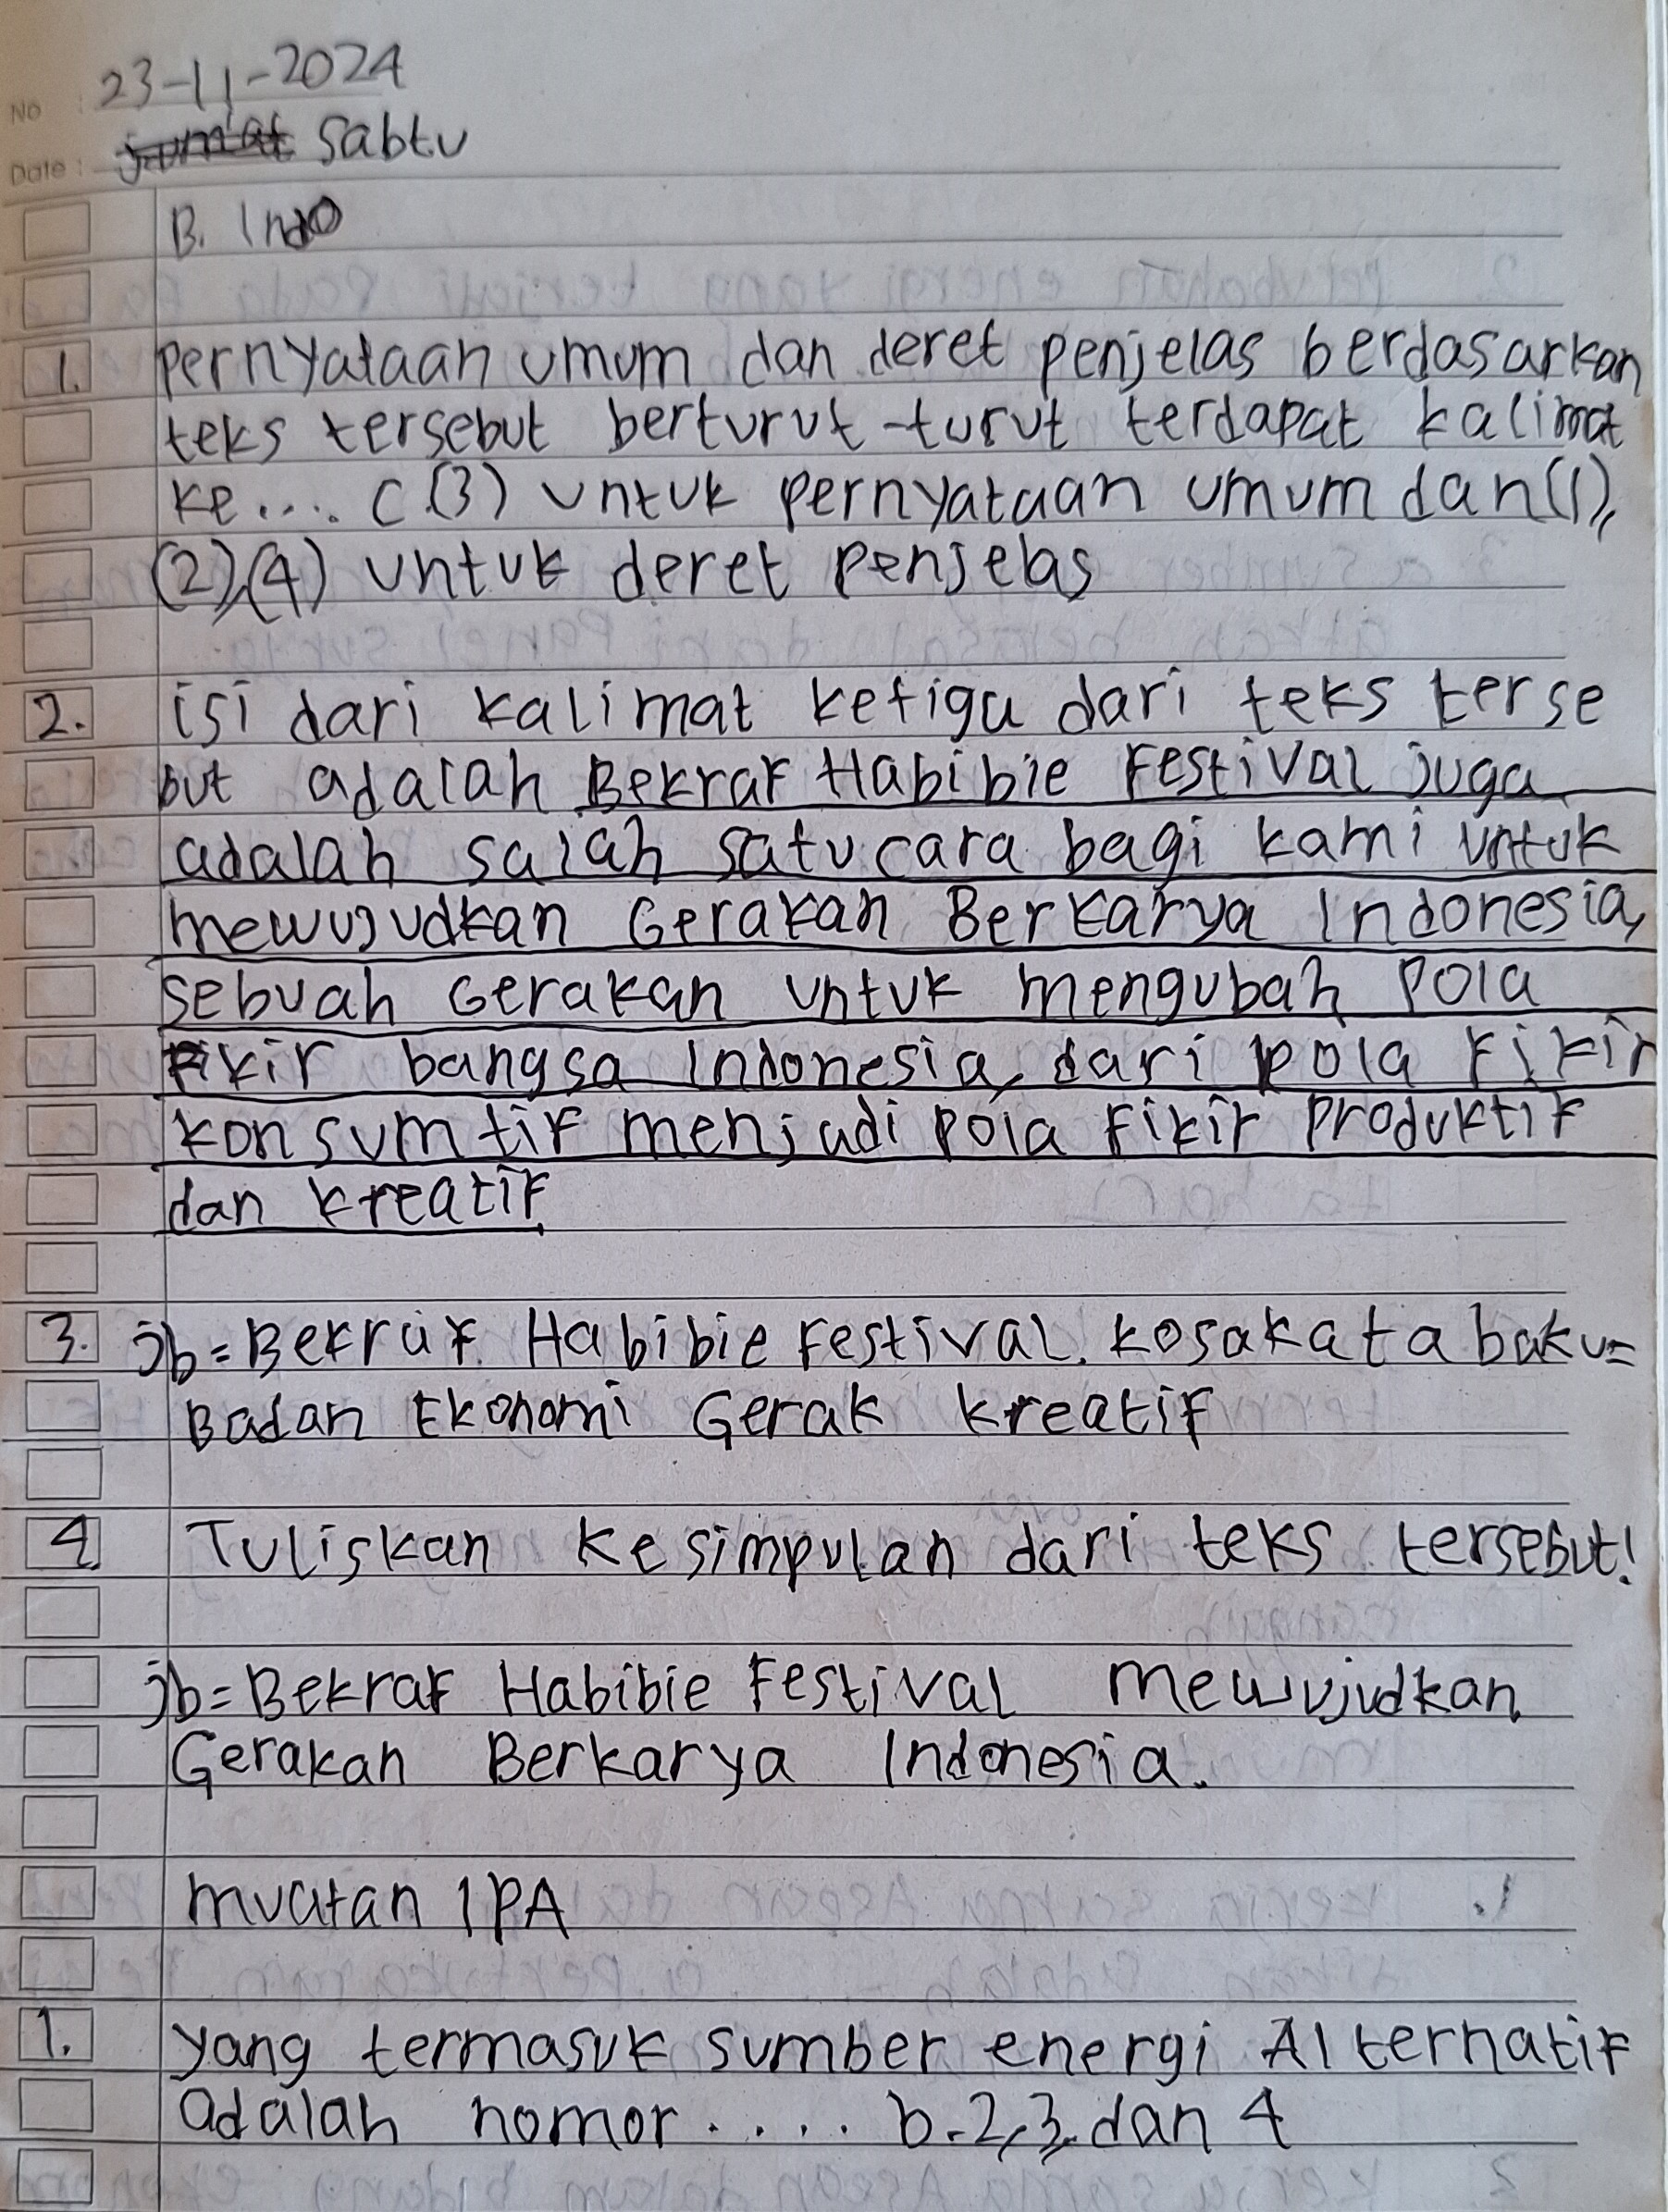 No : 23-11-2024
Date : Sabtu
B. Indo
1. pernyataan umum dan deret penjelas berdasarkan
teks tersebut berturut-turut terdapat kalimat
ke.... c (3) untuk pernyataan umum dan (1),
(2),(4) untuk deret penjelas
2. isi dari kalimat ketiga dari teks terse
but adalah Bekraf Habibie Festival juga
adalah salah satu cara bagi kami untuk
mewujudkan Gerakan Berkarya Indonesia,
sebuah Gerakan untuk mengubah pola
Fikir bangsa Indonesia, dari pola Fikir
konsumtif menjadi pola Fikir produktif
dan kreatif
3. jb = Bekraf Habibie Festival. kosakata baku =
Badan Ekonomi Gerak kreatif
4. Tuliskan kesimpulan dari teks tersebut!
jb = Bekraf Habibie Festival mewujudkan
Gerakan Berkarya Indonesia.
muatan IPA
1. yang termasuk sumber energi Alternatif
adalah nomor..... b. 2,3, dan 4